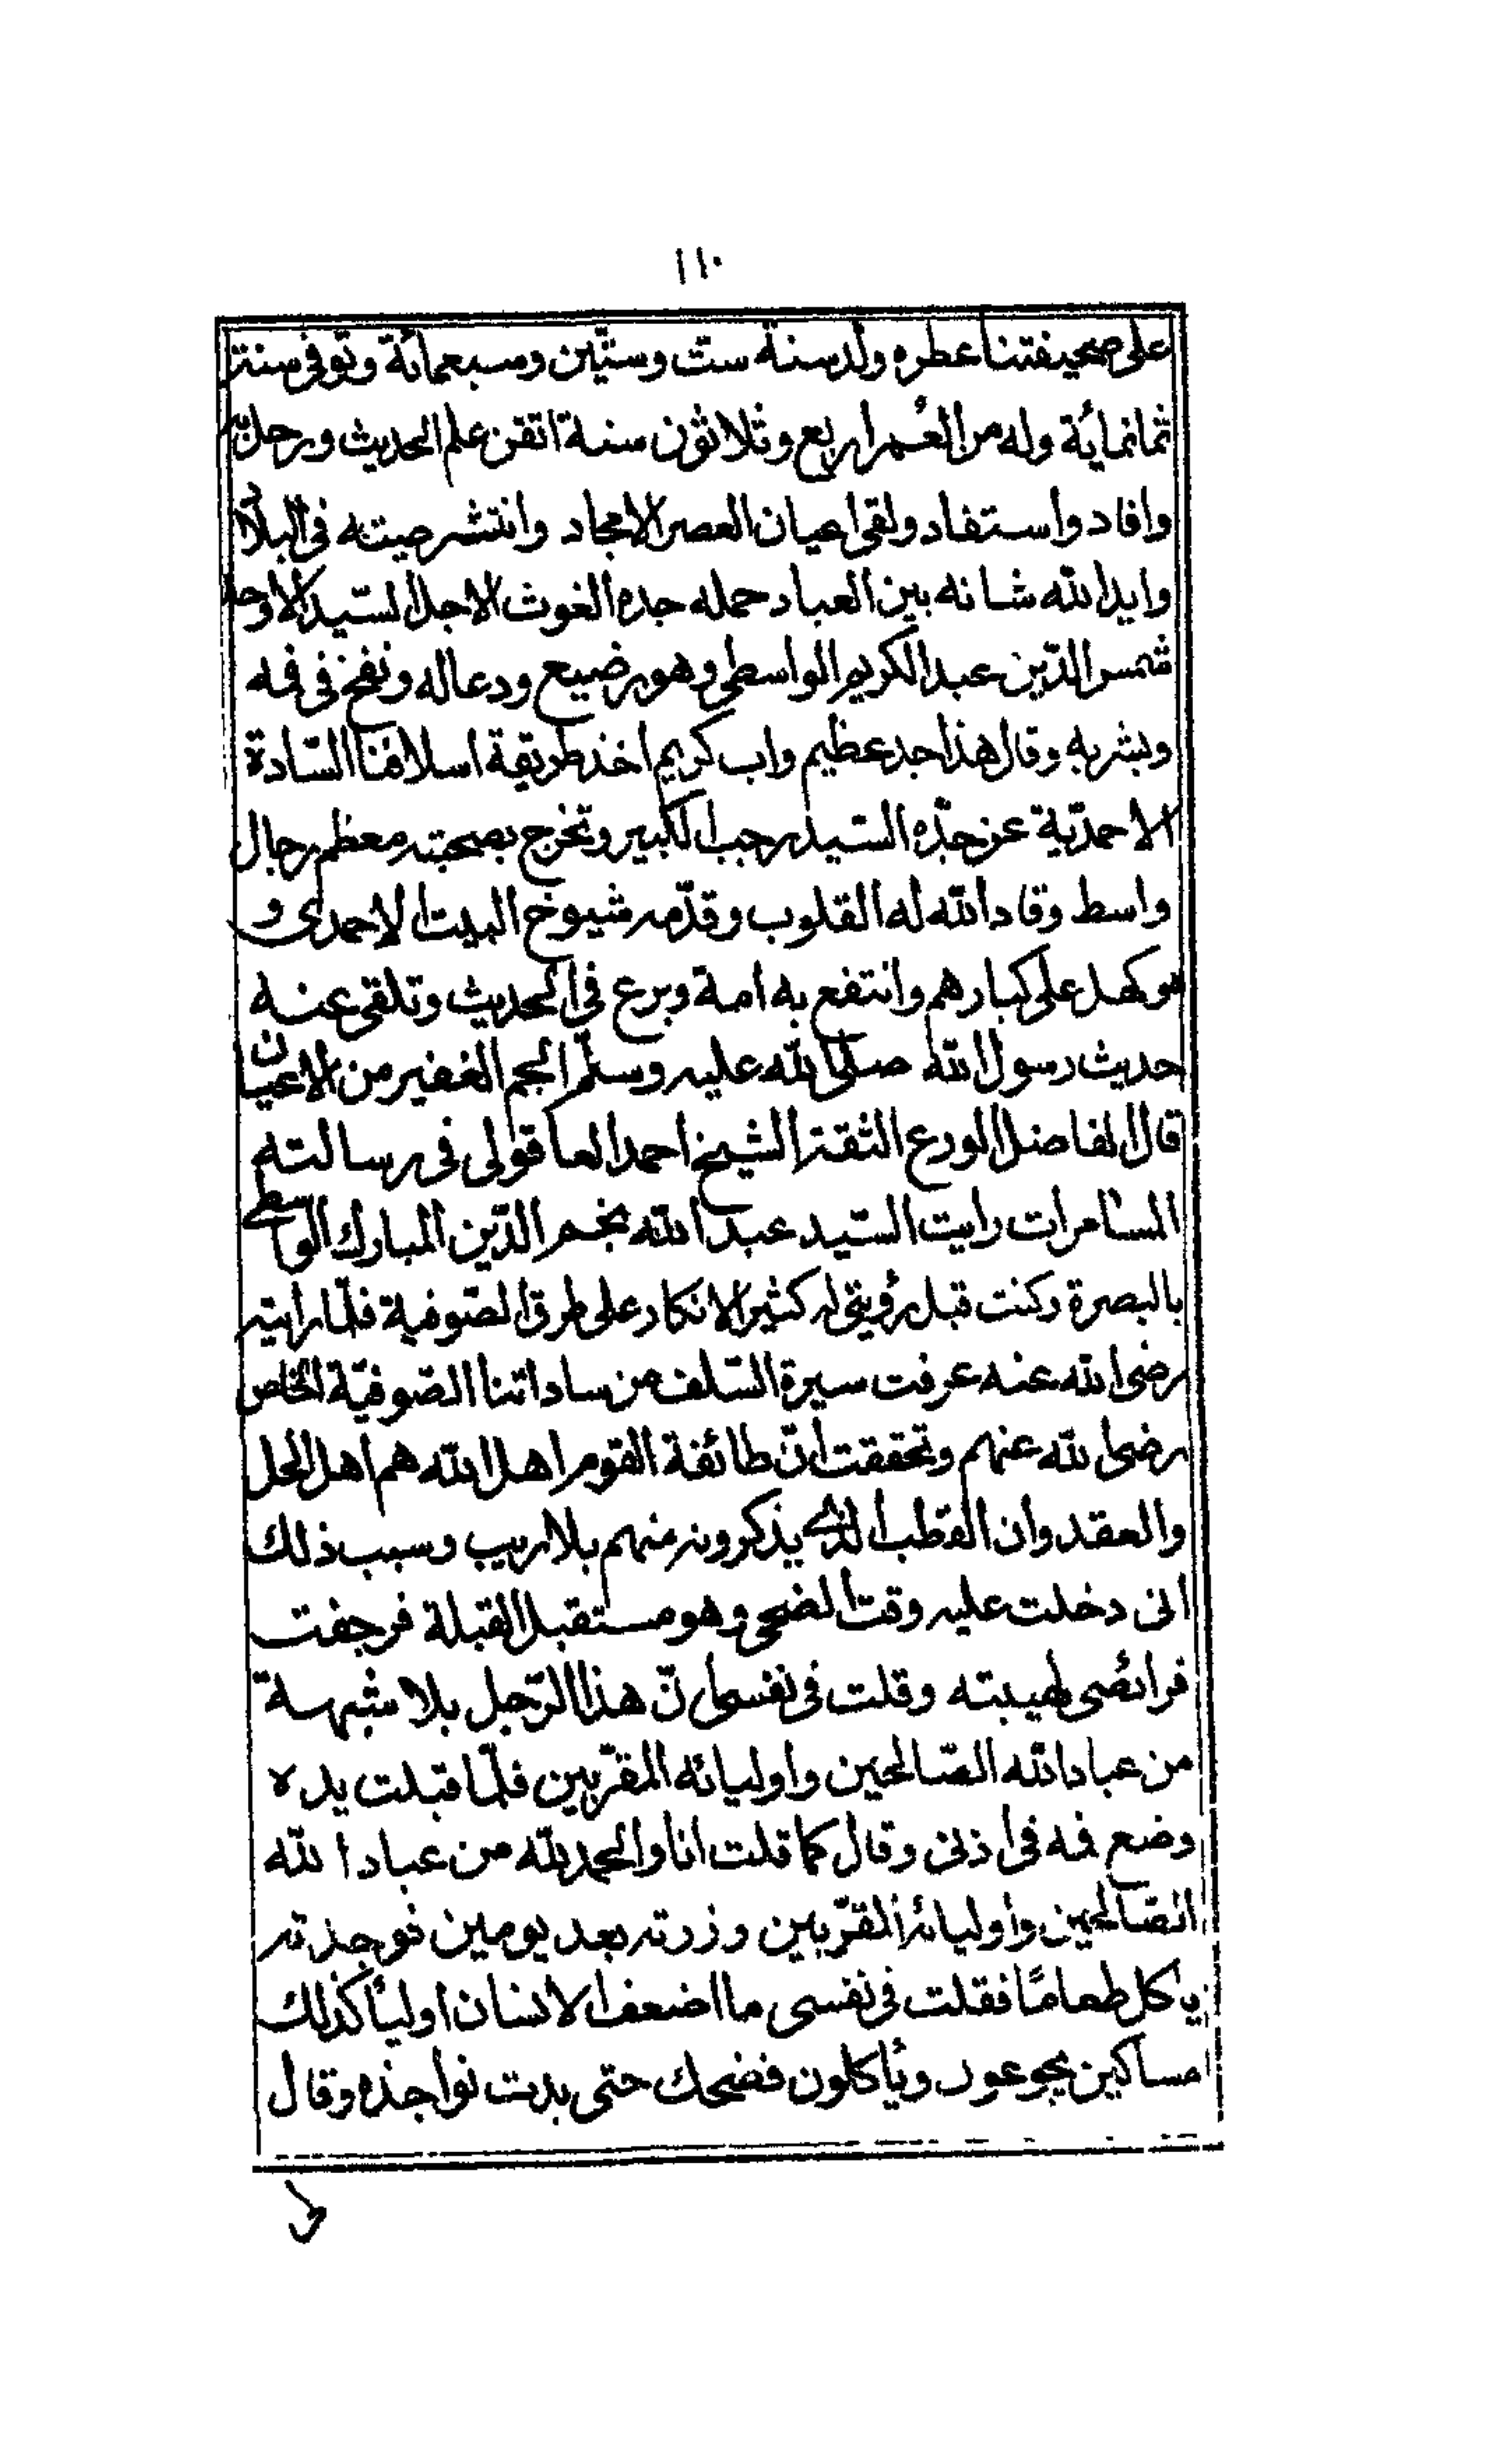 ١١٠
على صحيفتنا عطره ولد سنة ست وستين وسبعمائة وتوفى سنة
ثمانماية وله من العُمر اربع وثلاثون سنة اتقن علم الحديث ورحل
وافاد واستفاد ولقى اعيان العصر الامجاد وانتشر صيته فى البلاد
وايد الله شانه بين العباد حمله جده الغوث الاجل السّيد الاوحد
شمس الدّين عبد الكريم الواسطى وهو رضيع ودعا له ونفخ فى فمه
وبشر به وقال هذا جد عظيم واب كريم اخذ طريقة اسلافنا السّادة
الاحمدّية عن جدّه السّيد رجب الكبير وتخرج بصحبته معظم رجال
واسط وقاد الله له القلوب وقدّمه شيوخ البيت الاحمدى و
هو كهل على كبارهم وانتفع به امة وبرع فى الحديث وتلقى عنه
حديث رسول الله صلى الله عليه وسلّم الجم الغفير من الاعيان
قال الفاضل الورع الثقة الشيخ احمد العاقولى فى رسالته
المسامرات رايت السّيد عبد الله نجم الدّين المبارك الواسطى
بالبصرة وكنت قبل رؤيتى له كثير الانكار على طرق الصّوفية فلمّا رايته
رضى الله عنه عرفت سيرة السّلف من ساداتنا الصّوفيّة الخاص
رضى الله عنهم وتحققت انّ طائفة القوم اهل الله هم اهل الحل
والعقد وان القطب الذى يذكرونه منهم بلا ريب وسبب ذلك
انى دخلت عليه وقت الضحى وهو مستقبل القبلة فرجفت
فرائصى لهيبته وقلت فى نفسى انّ هذا الرّجل بلا شبهة
من عباد الله الصّالحين واوليائه المقرّبين فلمّا قبلت يده
وضع فمه فى اذنى وقال كما قلت انا والحمد لله من عباد الله
الصّالحين واوليائه المقرّبين وزرته بعد يومين فوجدته
ياكل طعامًا فقلت فى نفسى ما اضعف الانسان اوليأ كذلك
مساكين يجوعون ويأكلون فضحك حتى بدت نواجذه وقال